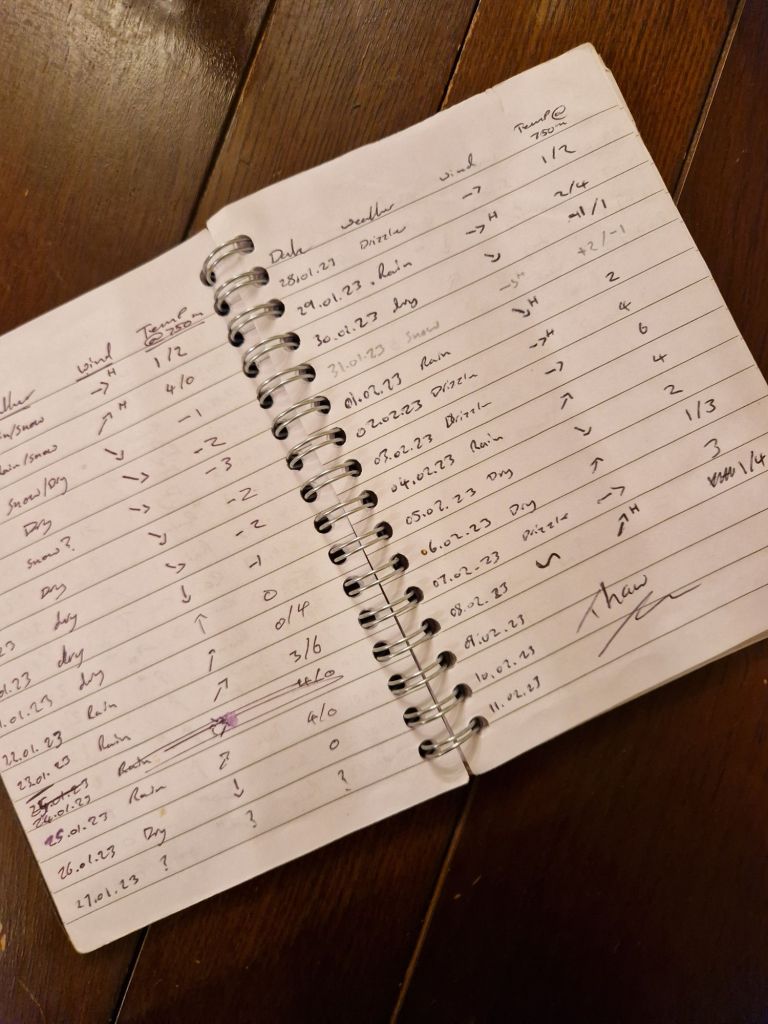 wind Temp @ 750m
→H 1/2
Rain/snow ↗H 4/0
Snow/Dry ↘ -1
Dry → -2
snow? → -3
Dry ↘ -2
23 dry ↘ -2
01.23 dry ↓ -1
1.01.23 dry ↑ 0
22.01.23 Rain ↑ 0/4
23.01.23 Rain ↗ 3/6
24.01.23 Rain 4/0
25.01.23 Rain ↗ 4/0
26.01.23 Dry ↓ 0
27.01.23 ? ? ?
Date weather wind Temp @ 750m
28.01.23 Drizzle → 1/2
29.01.23 Rain →H 2/4
30.01.23 dry ↘ -1/1
31.01.23 Snow →H +2/-1
01.02.23 Rain ↘H 2
02.02.23 Drizzle →H 4
03.02.23 Drizzle → 6
04.02.23 Rain ↗ 4
05.02.23 Dry ↘ 2
06.02.23 Dry ↑ 1/3
07.02.23 Drizzle → 3
08.02.23 ~ ↗H 1/4
09.02.23
10.02.23 Thaw
11.02.23